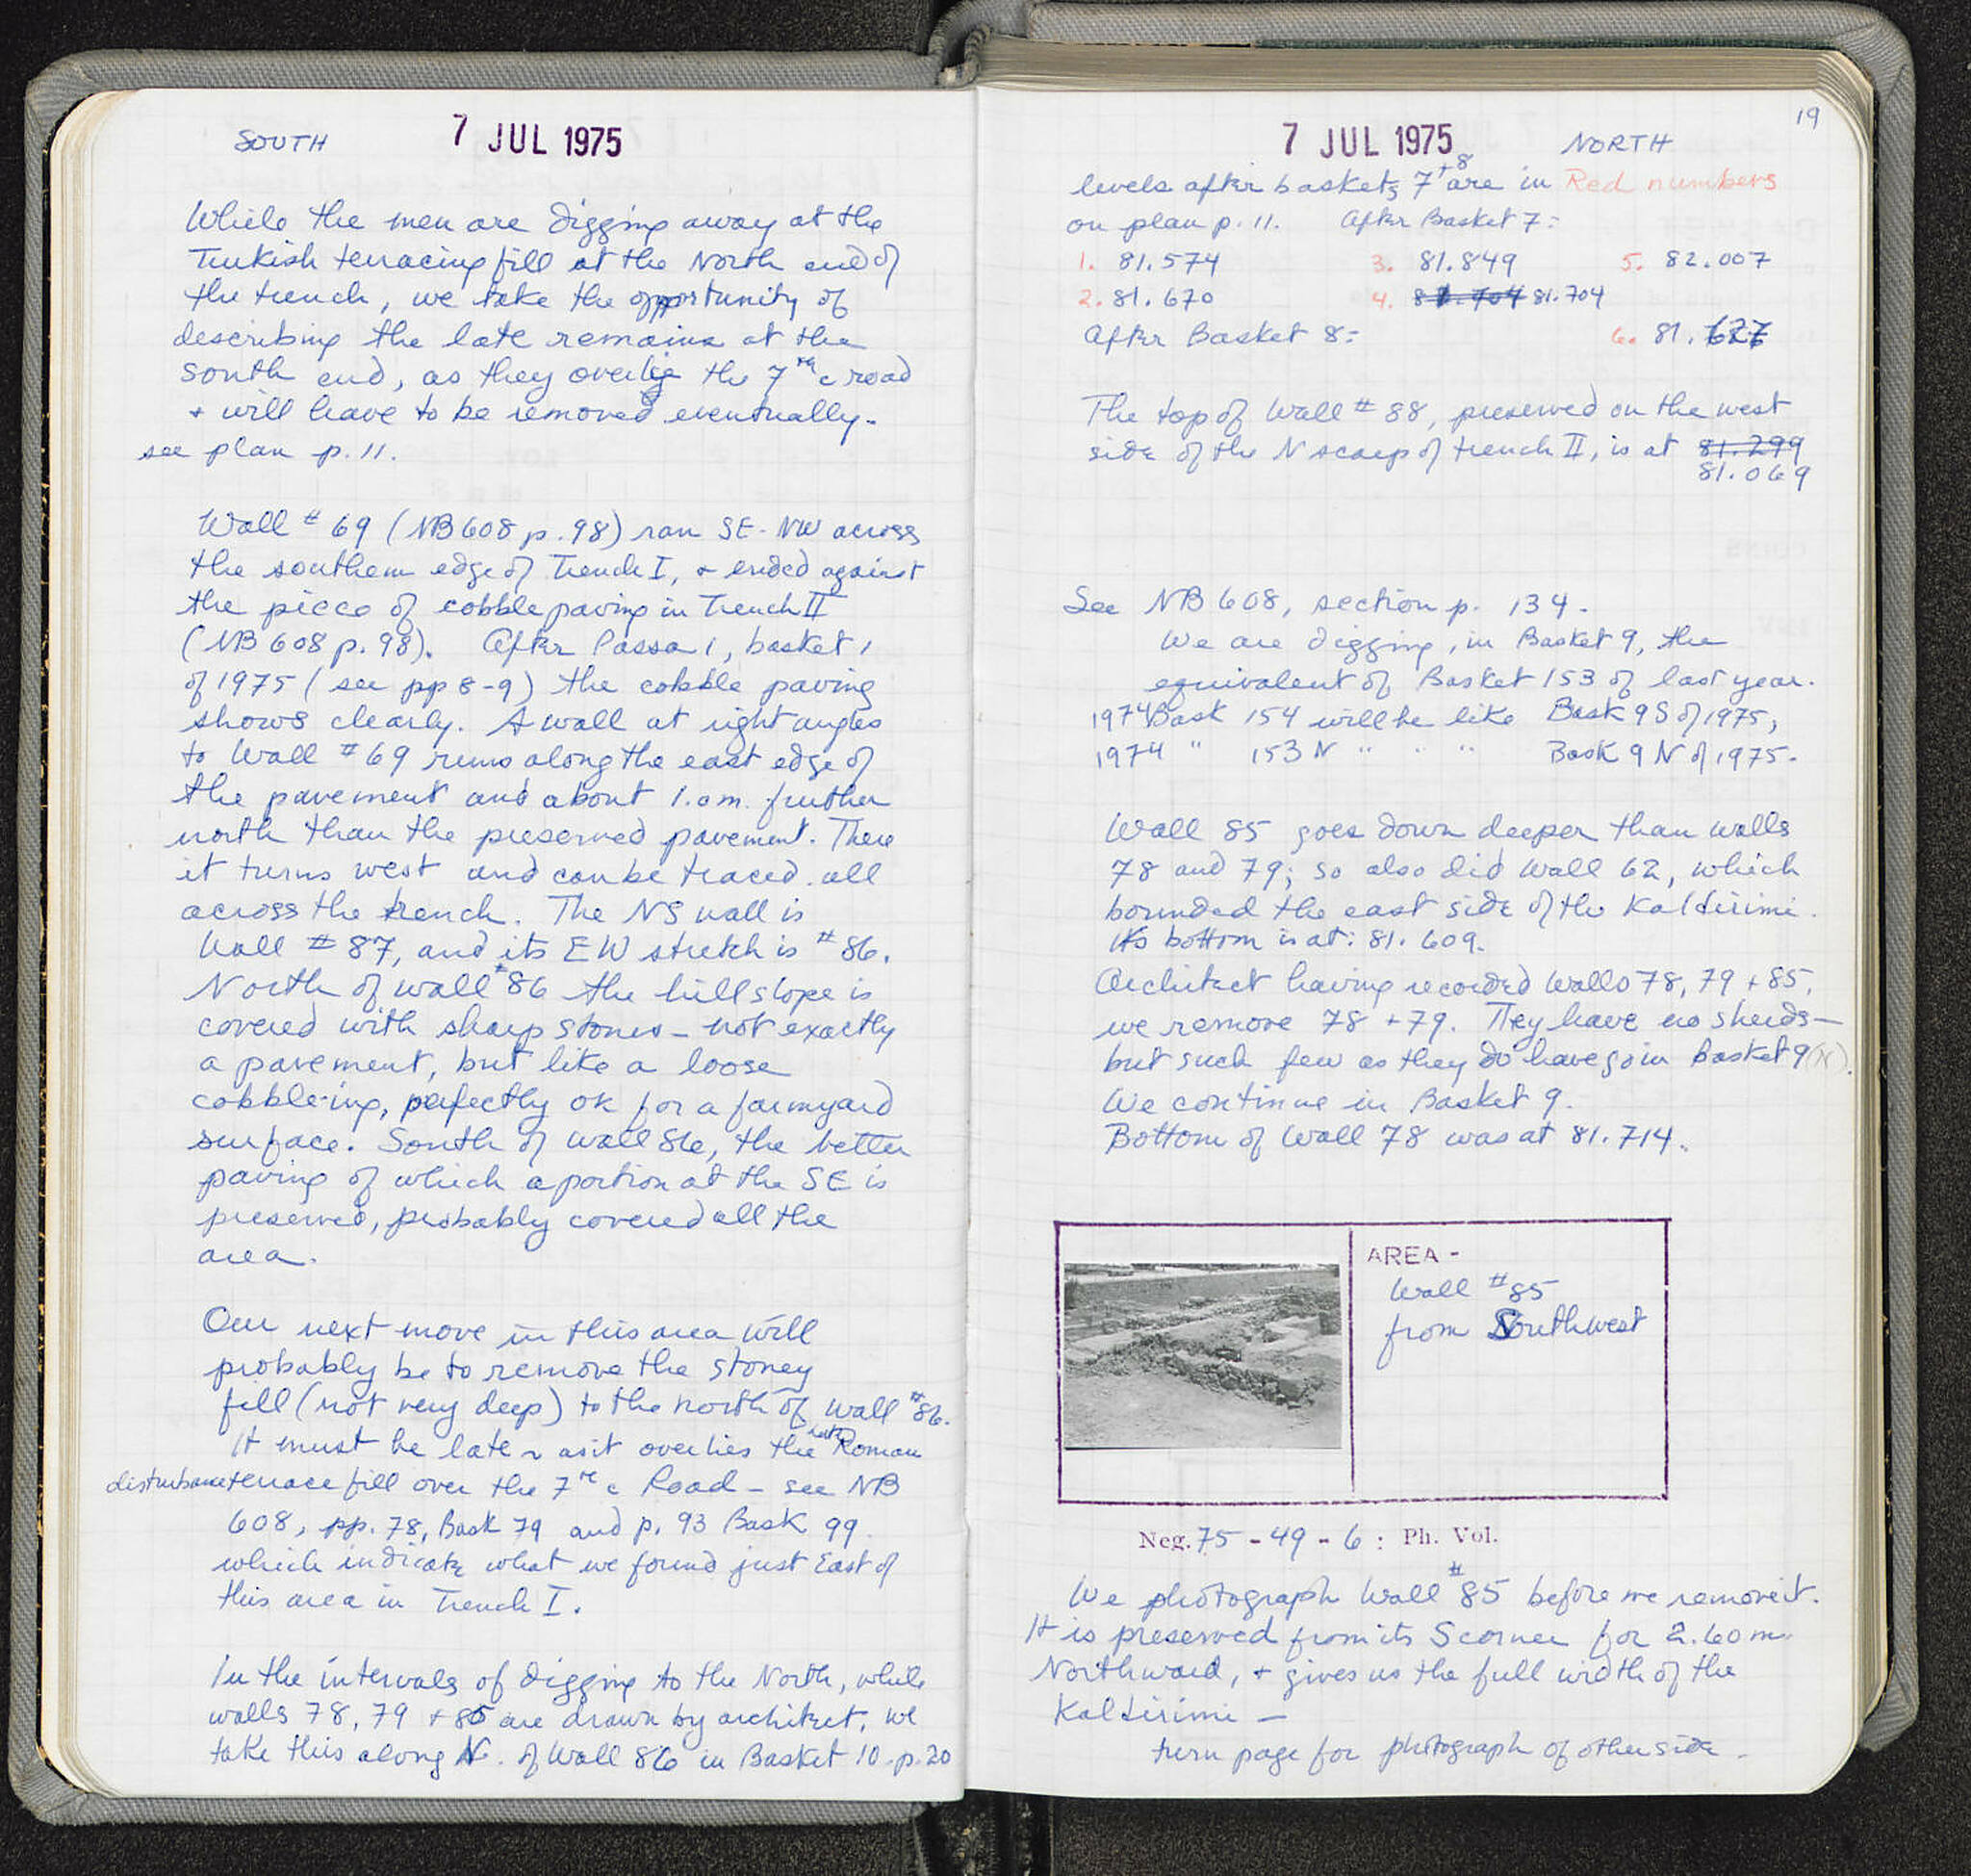 SOUTH 7 JUL 1975
While the men are digging away at the
Turkish terracing fill at the North end of
the trench, we take the opportunity of
describing the late remains at the
south end, as they overlie the 7th c road
+ will have to be removed eventually.
see plan p. 11.
Wall # 69 (NB 608 p. 98) ran SE-NW across
the southern edge of Trench I, + ended against
the piece of cobble paving in Trench II
(NB 608 p. 98). After Passa 1, basket 1
of 1975 (see pp 8-9) the cobble paving
shows clearly. A wall at right angles
to Wall # 69 runs along the east edge of
the pavement and about 1.0 m. further
north than the preserved pavement. There
it turns west and can be traced all
across the trench. The NS wall is
Wall # 87, and its EW stretch is # 86.
North of wall # 86 the hill slope is
covered with sharp stones - not exactly
a pavement, but like a loose
cobble-ing, perfectly ok for a farmyard
surface. South of wall 86, the better
paving of which a portion at the SE is
preserved, probably covered all the
area.
Our next move in this area will
probably be to remove the stoney
fill (not very deep) to the north of wall # 86.
It must be late as it overlies the late Roman
disturbance terrace fill over the 7th c Road - see NB
608, pp. 78, Bask 79 and p. 93 Bask 99
which indicate what we found just East of
this area in Trench I.
In the intervals of digging to the North, while
walls 78, 79 + 85 are drawn by architect, we
take this along N. of Wall 86 in Basket 10 - p. 20
19
7 JUL 1975 NORTH
levels after baskets 7 + 8 are in Red numbers
on plan p. 11. After Basket 7:
1. 81.574 3. 81.849 5. 82.007
2. 81.670 4. 81.704
After Basket 8: 6. 81.627
The top of Wall # 88, preserved on the west
side of the N scarp of trench II, is at 81.299
81.069
See NB 608, section p. 134.
We are digging, in Basket 9, the
equivalent of Basket 153 of last year.
1974 Bask 154 will be like Bask 9 S of 1975,
1974 " 153 N " " " Bask 9 N of 1975.
Wall 85 goes down deeper than walls
78 and 79; so also did Wall 62, which
bounded the east side of the Kaldirimi.
Its bottom is at: 81.609.
Architect having recorded Walls 78, 79 + 85,
we remove 78 + 79. They have no sherds —
but such few as they do have go in Basket 9 (N).
We continue in Basket 9.
Bottom of Wall 78 was at 81.714.
AREA -
Wall # 85
from Southwest
Neg. 75 - 49 - 6 : Ph. Vol.
We photograph Wall # 85 before we remove it.
It is preserved from its S corner for 2.60 m.
Northward, + gives us the full width of the
Kaldirimi —
turn page for photograph of other side.